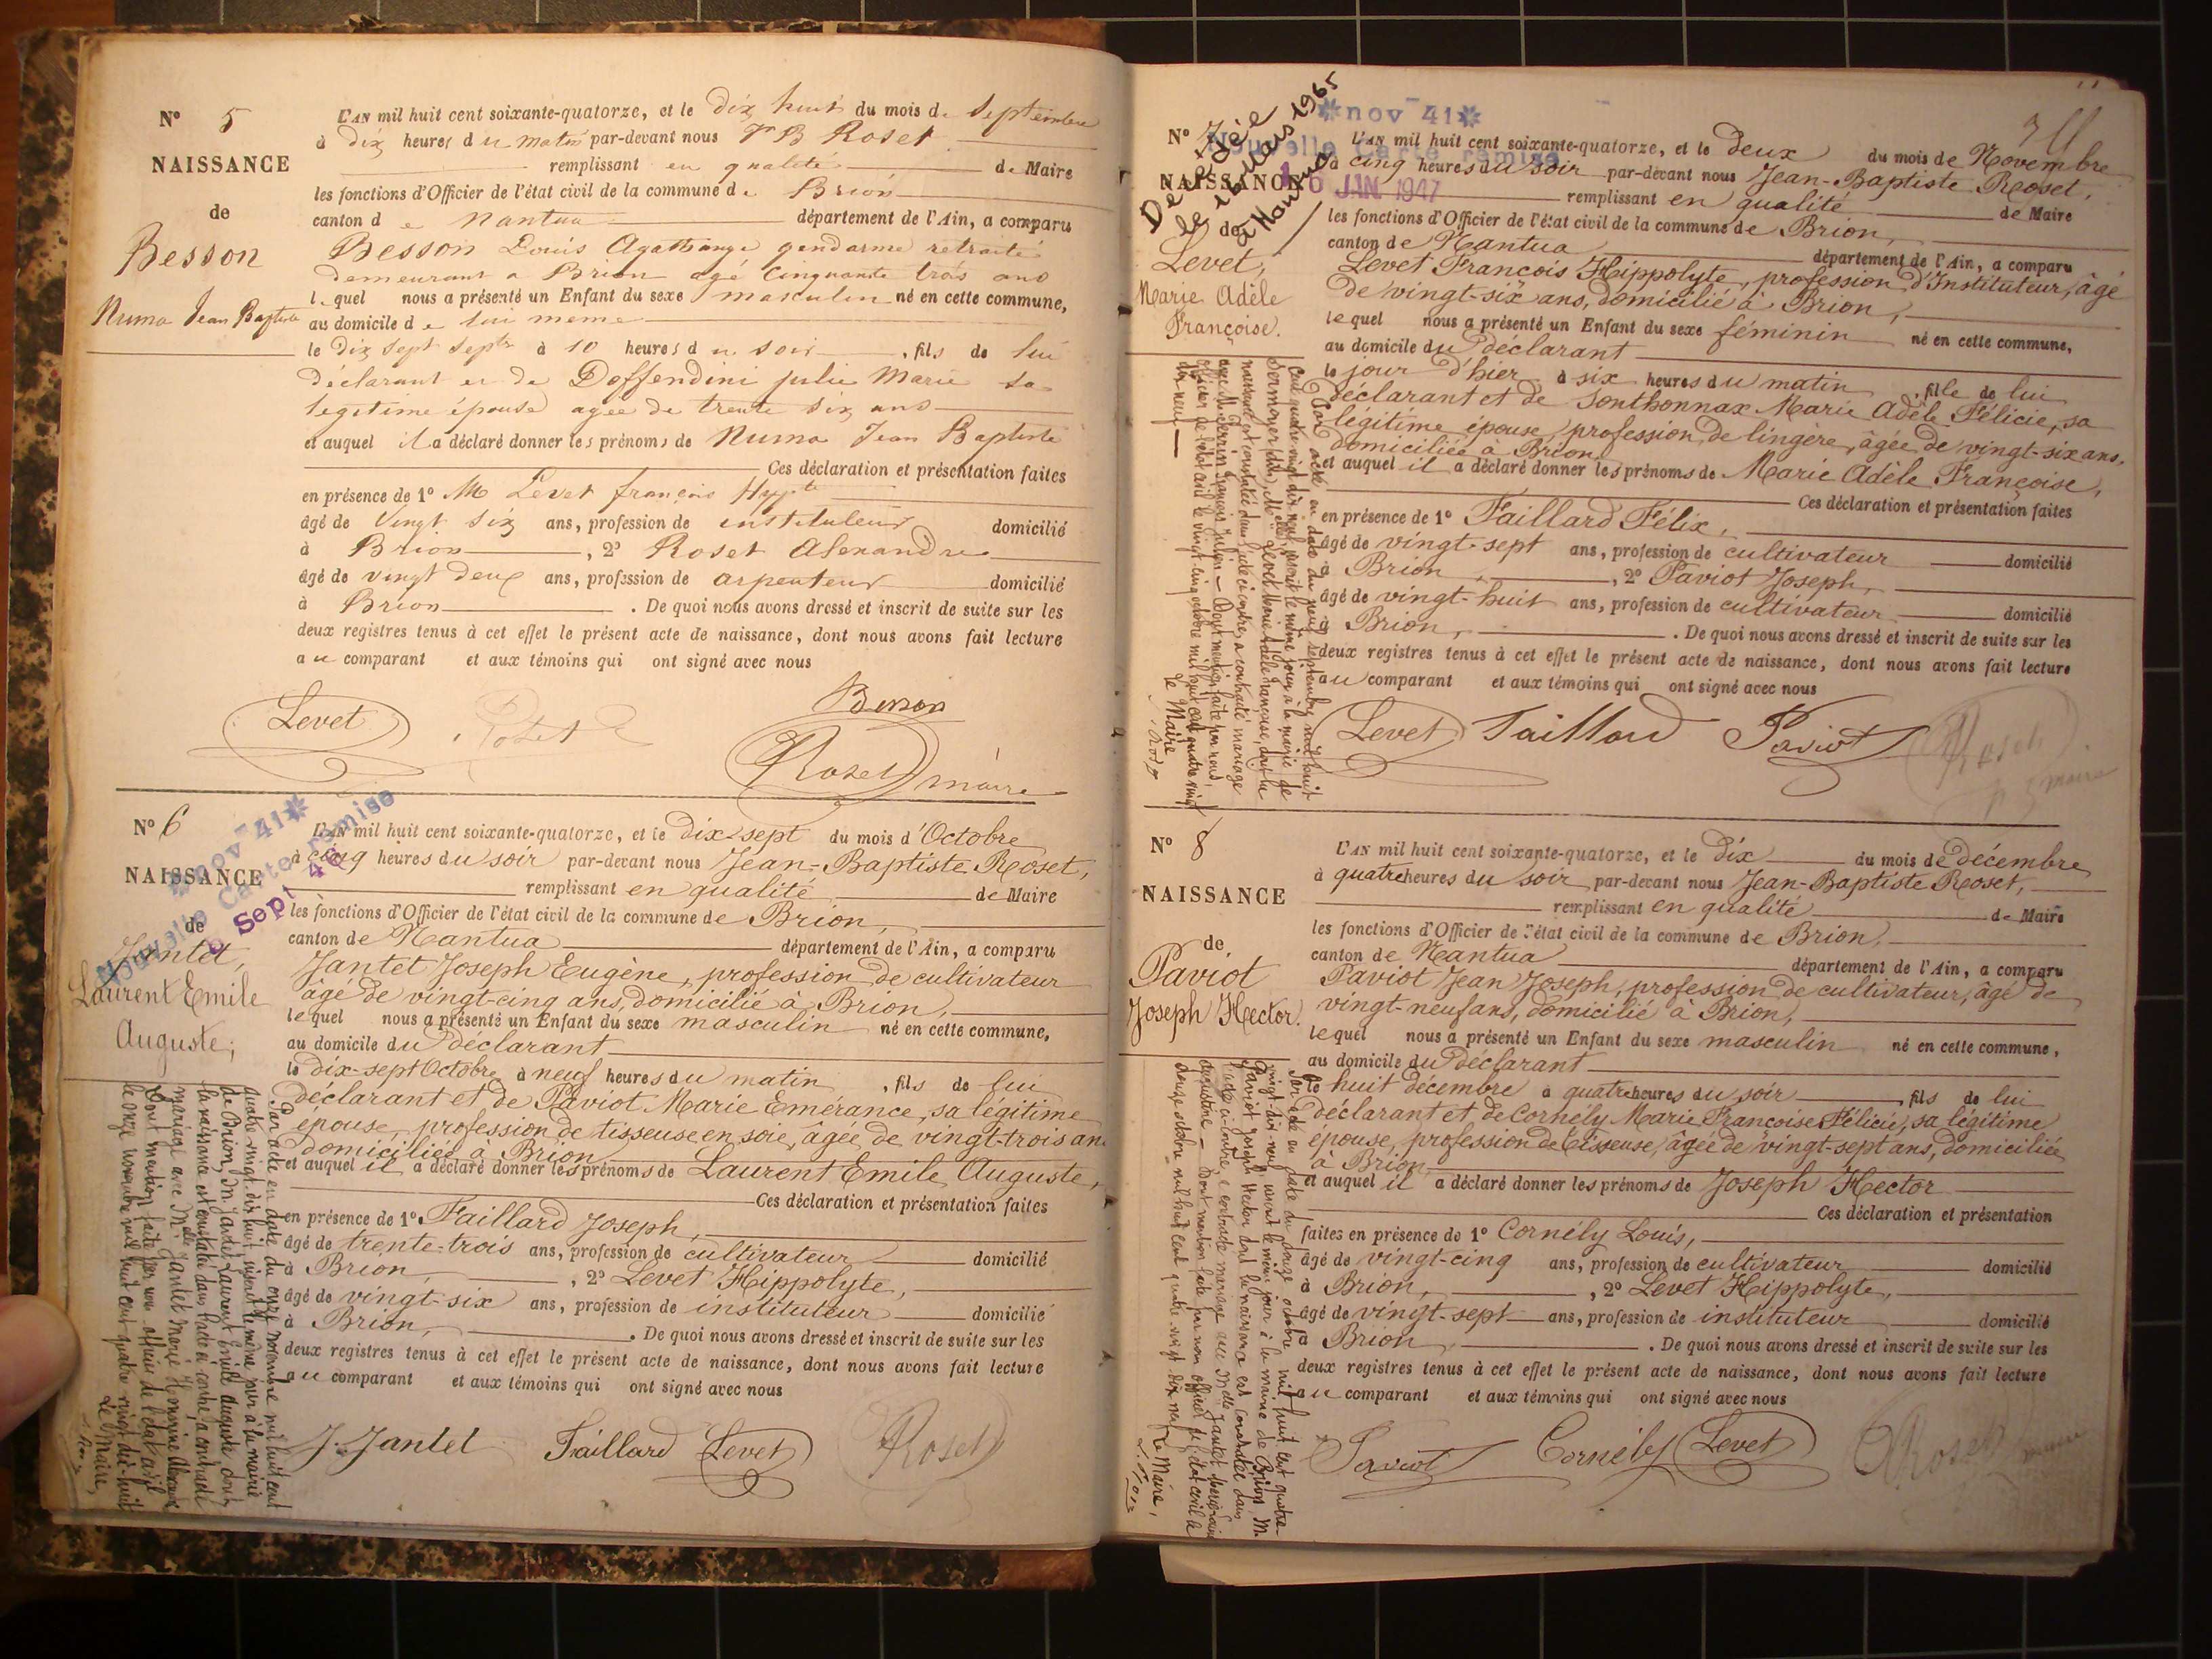 N° 5
NAISSANCE
de
Besson
Numa Jean Baptiste
L'AN mil huit cent soixante-quatorze, et le dix huit du mois de Septembre
à dix heures du matin par-devant nous J B Roset
remplissant en qualité de Maire
les fonctions d'Officier de l'état civil de la commune de Brion
canton de Nantua département de l'Ain, a comparu
Besson Louis Agathange gendarme retraité
demeurant a Brion agé cinquante trois ans
lequel nous a présenté un Enfant du sexe masculin né en cette commune,
au domicile de lui meme
le dix sept Sept à 10 heures du soir, fils de lui
déclarant et de Doffendini julie Marie sa
legitime épouse agée de trente six ans
et auquel il a déclaré donner les prénoms de Numa Jean Baptiste
Ces déclaration et présentation faites
en présence de 1° M Levet françois Hypte
âgé de Vingt Six ans, profession de instituteur domicilié
à Brion, 2° Roset Alexandre
âgé de vingt deux ans, profession de arpenteur domicilié
à Brion. De quoi nous avons dressé et inscrit de suite sur les
deux registres tenus à cet effet le présent acte de naissance, dont nous avons fait lecture
au comparant et aux témoins qui ont signé avec nous
Levet Roset Besson
Roset maire
N° 6
NAISSANCE
de
Jantet,
Laurent Emile
Auguste;
nov 41
Nouvelle Carte remise
Sept 46
L'AN mil huit cent soixante-quatorze, et le dix-sept du mois d'Octobre
à cinq heures du soir par-devant nous Jean-Baptiste Roset,
remplissant en qualité de Maire
les fonctions d'Officier de l'état civil de la commune de Brion,
canton de Nantua département de l'Ain, a comparu
Jantet Joseph Eugène, profession de cultivateur
âgé de vingt-cinq ans, domicilié à Brion,
lequel nous a présenté un Enfant du sexe masculin né en cette commune,
au domicile du déclarant
le dix-sept Octobre à neuf heures du matin, fils de lui
déclarant et de Paviot Marie Emérance, sa légitime
épouse, profession de tisseuse en soie, âgée de vingt-trois ans
domiciliée à Brion
et auquel il a déclaré donner les prénoms de Laurent Emile Auguste,
Ces déclaration et présentation faites
en présence de 1° Faillard Joseph,
âgé de trente-trois ans, profession de cultivateur domicilié
à Brion, 2° Levet Hippolyte,
âgé de vingt-six ans, profession de instituteur domicilié
à Brion,. De quoi nous avons dressé et inscrit de suite sur les
deux registres tenus à cet effet le présent acte de naissance, dont nous avons fait lecture
au comparant et aux témoins qui ont signé avec nous
J. Jantet Faillard Levet Roset
Par acte en date du onze novembre mil huit cent
quatre-vingt-dix-huit inscrit le même jour à la mairie
de Brion, M. Jantet Laurent Emile Auguste dont
la naissance est constatée dans l'acte ci-contre, a contracté
mariage avec Melle Jantet Marie
Dont mention faite par nous officier de l'état civil
le onze novembre mil huit cent quatre vingt dix-huit
Le Maire,
N° 7
NAISSANCE
de
Levet,
Marie Adèle
Françoise.
Décédée
le 1 Mars 1965
à Nantua
nov 41
Nouvelle Carte remise
16 JAN 1947
L'AN mil huit cent soixante-quatorze, et le deux du mois de Novembre
à cinq heures du soir par-devant nous Jean-Baptiste Roset,
remplissant en qualité de Maire
les fonctions d'Officier de l'état civil de la commune de Brion,
canton de Nantua département de l'Ain, a comparu
Levet François Hippolyte, profession d'Instituteur, âgé
de vingt-six ans, domicilié à Brion,
lequel nous a présenté un Enfant du sexe féminin né en cette commune,
au domicile du déclarant
le jour d'hier à six heures du matin, fille de lui
déclarant et de Sonthonnax Marie Adèle Félicie, sa
légitime épouse, profession de lingère, âgée de vingt-six ans,
domiciliée à Brion
et auquel il a déclaré donner les prénoms de Marie Adèle Françoise,
Ces déclaration et présentation faites
en présence de 1° Faillard Félix,
âgé de vingt-sept ans, profession de cultivateur domicilié
à Brion, 2° Paviot Joseph,
âgé de vingt-huit ans, profession de cultivateur domicilié
à Brion,. De quoi nous avons dressé et inscrit de suite sur les
deux registres tenus à cet effet le présent acte de naissance, dont nous avons fait lecture
au comparant et aux témoins qui ont signé avec nous
Levet Faillard Paviot Roset
maire
Par acte en date du neuf septembre mil huit
cent quatre vingt dix neuf, inscrit le même jour à la mairie de
Melle Levet Marie Adèle Françoise, dont la
naissance est constatée dans l'acte ci-contre, a contracté mariage
avec M. Perrin François Julien — Dont mention faite par nous,
officier de l'état civil le vingt-cinq octobre mil huit cent quatre vingt
dix-neuf —
Le Maire
N° 8
NAISSANCE
de
Paviot
Joseph Hector.
L'AN mil huit cent soixante-quatorze, et le dix du mois de décembre
à quatre heures du soir par-devant nous Jean-Baptiste Roset,
remplissant en qualité de Maire
les fonctions d'Officier de l'état civil de la commune de Brion,
canton de Nantua département de l'Ain, a comparu
Paviot Jean Joseph, profession de cultivateur, âgé de
vingt-neuf ans, domicilié à Brion,
lequel nous a présenté un Enfant du sexe masculin né en cette commune,
au domicile du déclarant
le huit décembre à quatre heures du soir, fils de lui
déclarant et de Cornély Marie Françoise Félicie, sa légitime
épouse, profession de tisseuse, âgée de vingt-sept ans, domiciliée
à Brion
et auquel il a déclaré donner les prénoms de Joseph Hector
Ces déclaration et présentation
faites en présence de 1° Cornély Louis,
âgé de vingt-cinq ans, profession de cultivateur domicilié
à Brion, 2° Levet Hippolyte,
âgé de vingt-sept ans, profession de instituteur domicilié
à Brion,. De quoi nous avons dressé et inscrit de suite sur les
deux registres tenus à cet effet le présent acte de naissance, dont nous avons fait lecture
au comparant et aux témoins qui ont signé avec nous
Paviot Cornély Levet Roset maire
Par acte en date du douze octobre mil huit cent quatre-
vingt dix-neuf, inscrit le même jour à la mairie de Brion, M.
Paviot Joseph Hector dont la naissance est constatée dans
l'acte ci-contre, a contracté mariage avec Melle Jantet
Augustine — Dont mention faite par nous officier de l'état civil le
douze octobre mil huit cent quatre vingt dix neuf
Le Maire,